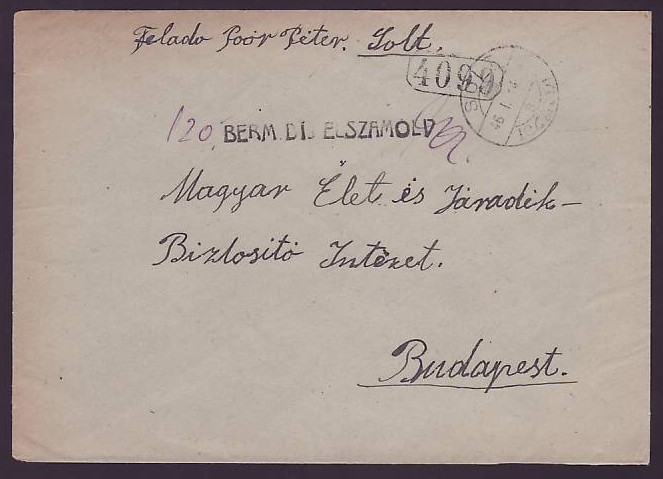 Felado Poór Péter. Solt.
4099
46 I
120 BERM. DIJ ELSZAMOLVA
Magyar Élet és Járadék-
Biztosító Intézet.
Budapest.